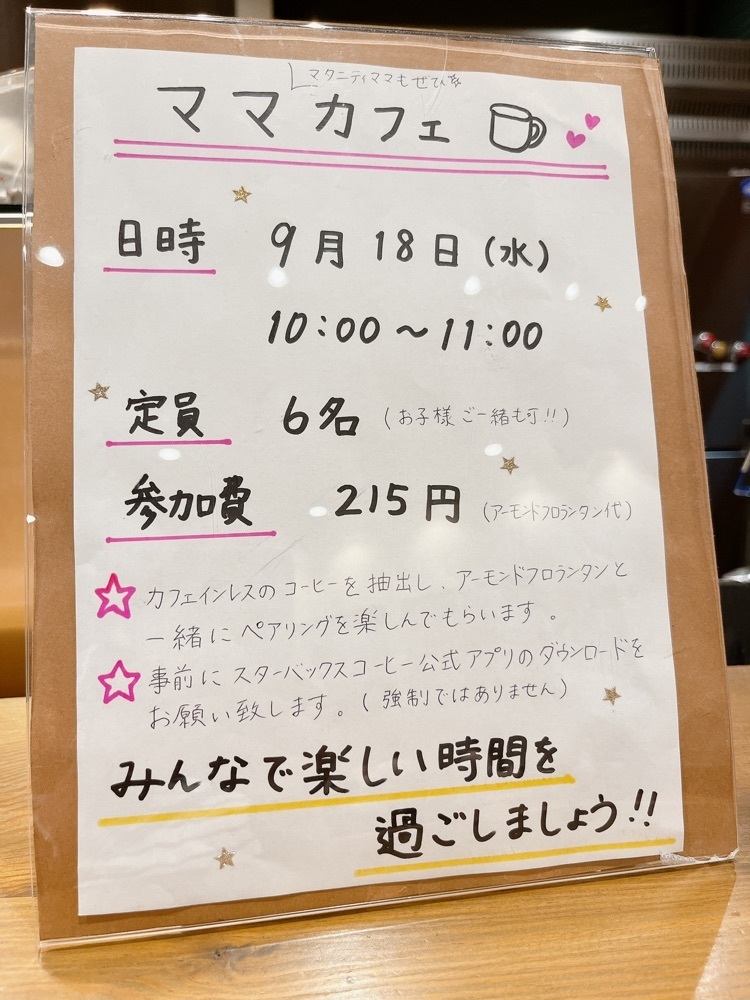 マタニティママもぜひ
ママカフェ
日時 9月18日(水)
10:00～11:00
定員 6名 (お子様ご一緒も可!!)
参加費 215円 (アーモンドフロランタン代)
☆カフェインレスのコーヒーを抽出し、アーモンドフロランタンと
一緒にペアリングを楽しんでもらいます。
☆事前にスターバックスコーヒー公式アプリのダウンロードを
お願い致します。(強制ではありません)
みんなで楽しい時間を
過ごしましょう!!